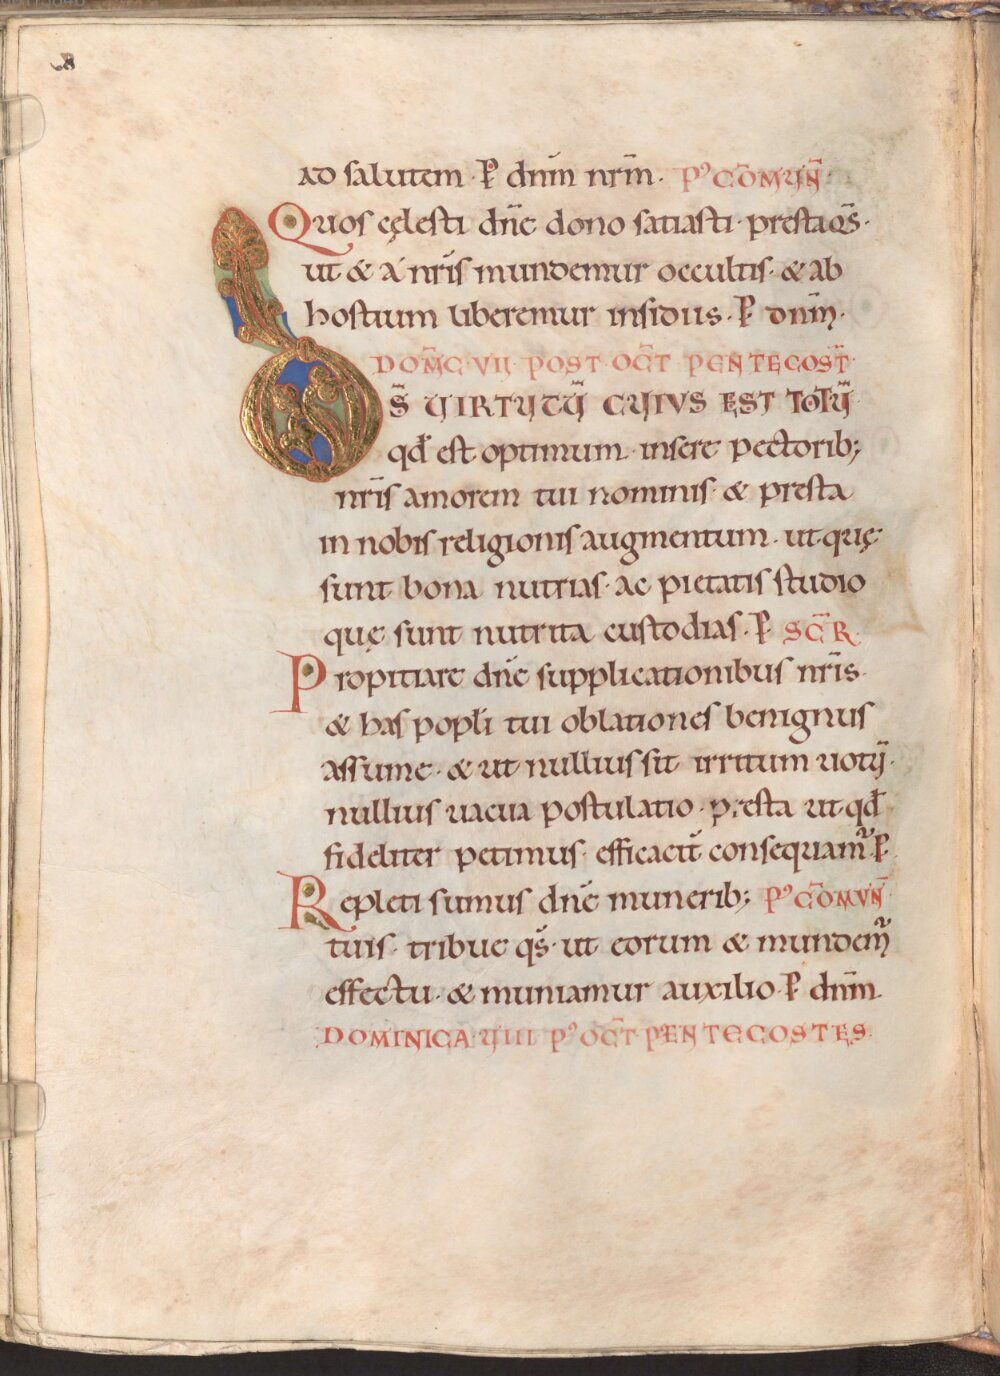 ad salutem · P̄ dnm̄ nrm̄. P᾽CŌMUÑ
Quos cęlesti dn̄e dono satiasti · prestaqs̄ ·
ut & a nr̄is mundemur occultis · & ab
hostium liberemur insidiis · P̄ dnm̄ ·
DOM̄C · VII · POST · OC̄T PENTECOST̄
DS̄ VIRTUTŪ CUIVS EST TOTŪ
qd̄ est optimum · insere pectorib;
nr̄is amorem tui nominis · & presta
in nobis religionis augmentum · ut quę
sunt bona nutrias · ac pietatis studio
quę sunt nutrita custodias · P̄ · SC̄R
Propitiare dn̄e supplicationibus nr̄is ·
& has popli tui oblationes benignus
assume · & ut nullius sit irritum uotū ·
nullius uacua postulatio · presta ut qd̄
fideliter petimus · efficacit̄ consequam᷑ P̄
Repleti sumus dn̄e munerib; P᾽CŌMVÑ
tuis · tribue qs̄ · ut eorum & mundem᷑
effectu · & muniamur auxilio · P̄ dnm̄
DOMINICA · VIII P᾽ OC̄T · PENTECOSTES